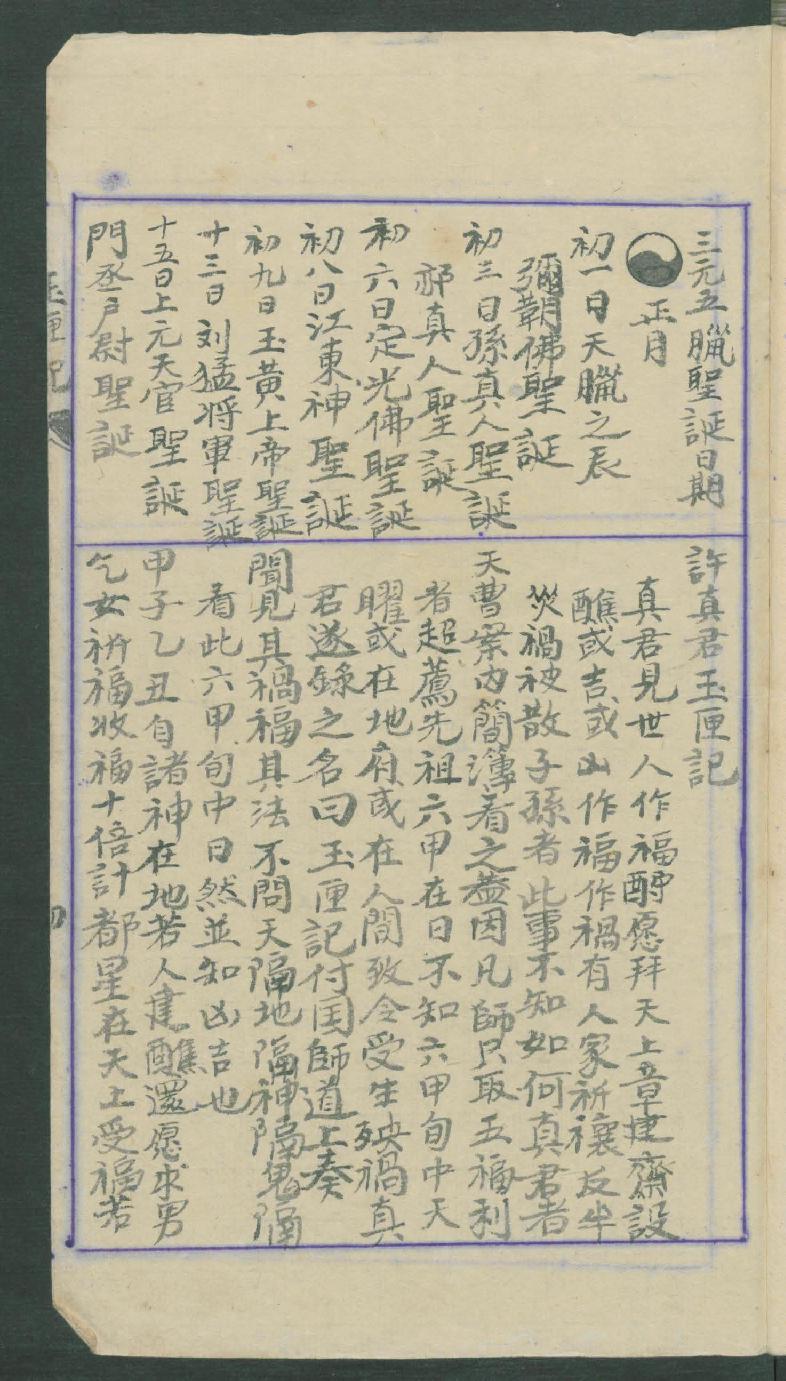 三元五臘聖誕日期
正月
初一日天臘之辰
彌勒佛聖誕
初三日孫真人聖誕
祁真人聖誕
初六日定光佛聖誕
初八日江東神聖誕
初九日玉黃上帝聖誕
十三日刘猛将軍聖誕
十五日上元天官聖誕
門丞户尉聖誕
許真君玉匣記
真君見世人作福酧愿拜天上章建齋設
醮或吉或凶作福作禍有人家祈禳反生
災禍被散子孫者此事不知如何真君者
天曹案内簡簿看之葢因凡師只取五福利
者超薦先祖六甲在日不知六甲旬中天
曜或在地府或在人間致令受生殃禍真
君遂錄之名曰玉匣記付国師道上奏
聞見其禍福其法不問天隔地隔神隔鬼隔
看此六甲旬中日然並知凶吉也
甲子乙丑旬諸神在地若人建醮還愿求男
乞女祈福收福十倍計都星在天上受福若
玉匣記